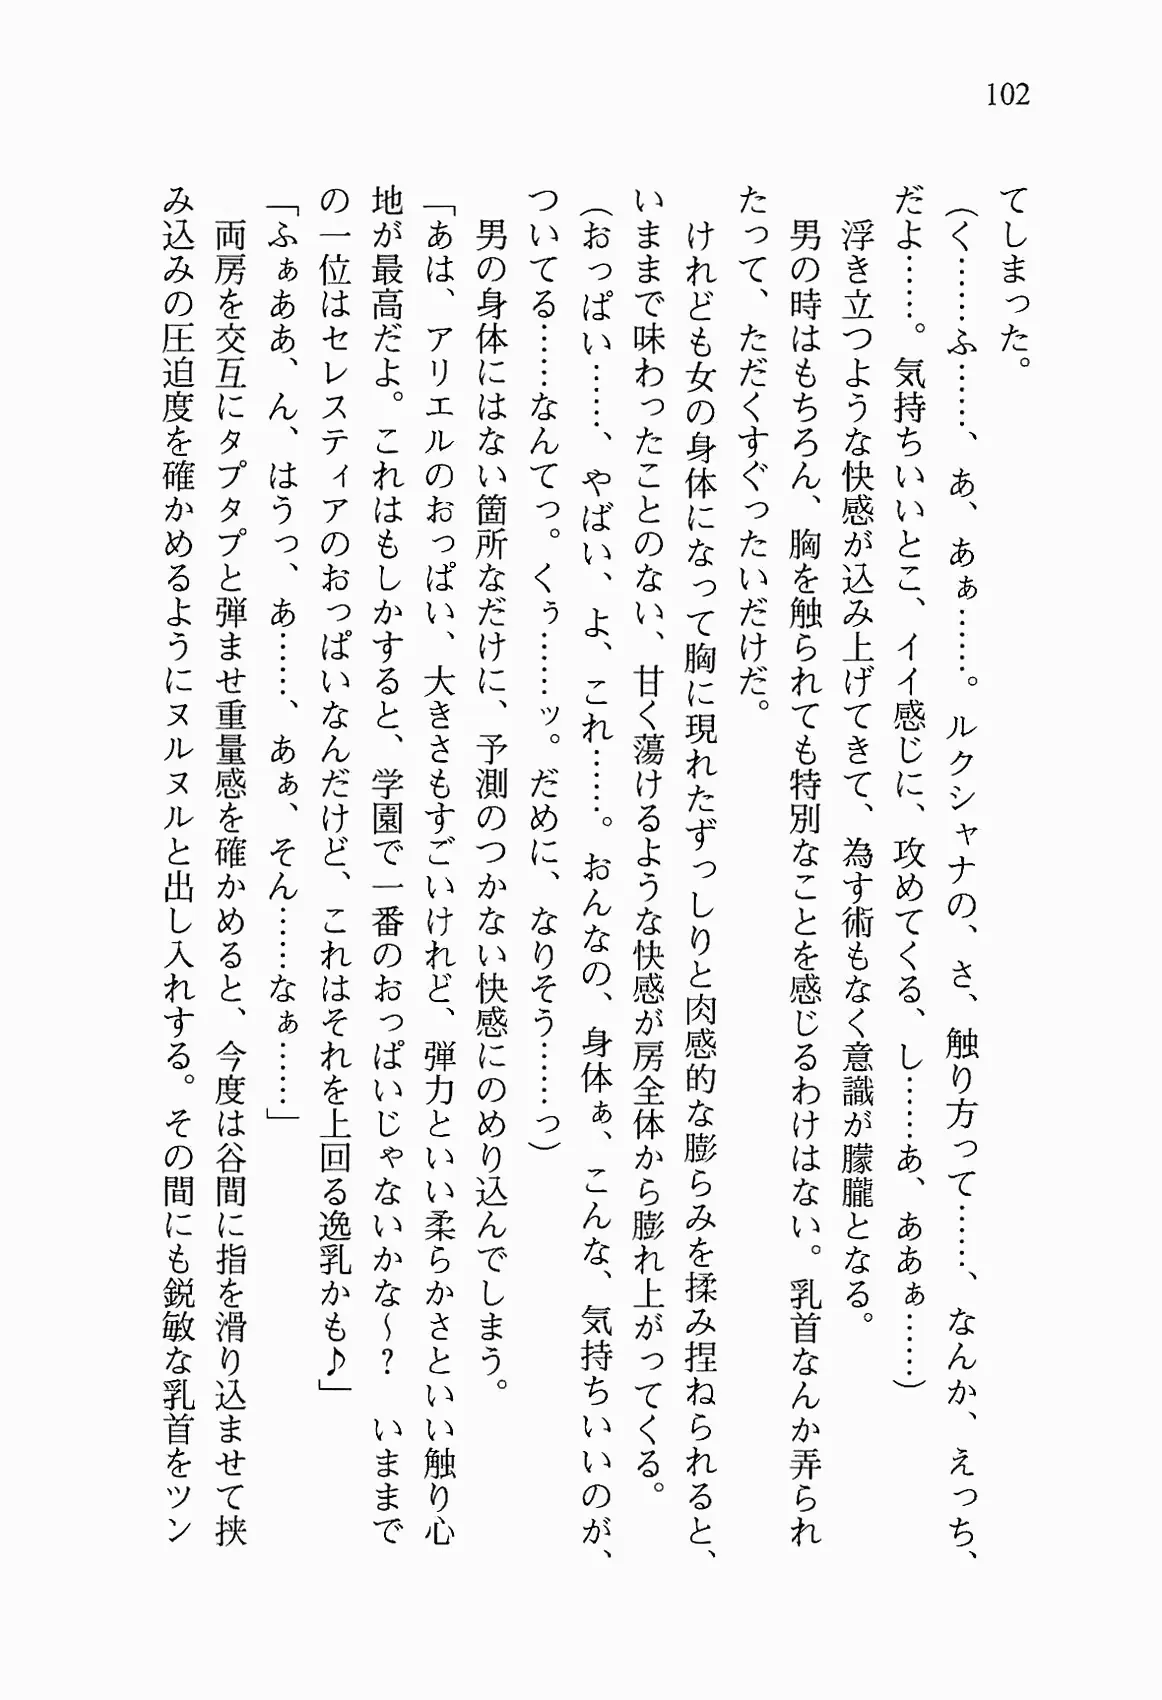 102
てしまった。
（く……ふ……、あ、あぁ……。ルクシャナの、さ、触り方って……、なんか、えっち、
だよ……。気持ちいいとこ、イイ感じに、攻めてくる、し……あ、ああぁ……）
浮き立つような快感が込み上げてきて、為す術もなく意識が朦朧となる。
男の時はもちろん、胸を触られても特別なことを感じるわけはない。乳首なんか弄られ
たって、ただくすぐったいだけだ。
けれども女の身体になって胸に現れたずっしりと肉感的な膨らみを揉み捏ねられると、
いままで味わったことのない、甘く蕩けるような快感が房全体から膨れ上がってくる。
（おっぱい……、やばい、よ、これ……。おんなの、身体ぁ、こんな、気持ちいいのが、
ついてる……なんてっ。くぅ……ッ。だめに、なりそう……っ）
男の身体にはない箇所なだけに、予測のつかない快感にのめり込んでしまう。
「あは、アリエルのおっぱい、大きさもすごいけれど、弾力といい柔らかさといい触り心
地が最高だよ。これはもしかすると、学園で一番のおっぱいじゃないかな～？　いままで
の一位はセレスティアのおっぱいなんだけど、これはそれを上回る逸乳かも♪」
「ふぁああ、ん、はうっ、あ……、あぁ、そん……なぁ……」
両房を交互にタプタプと弾ませ重量感を確かめると、今度は谷間に指を滑り込ませて挟
み込みの圧迫度を確かめるようにヌルヌルと出し入れする。その間にも鋭敏な乳首をツン